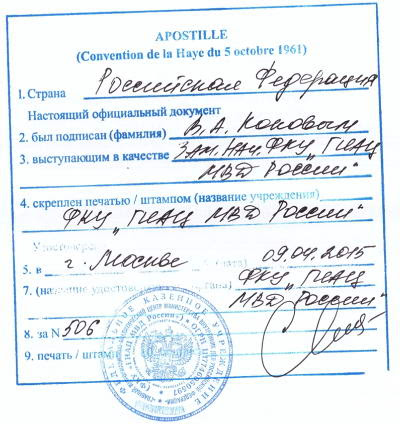 APOSTILLE
(Convention de la Haye du 5 octobre 1961)
1. Страна Российская Федерация
Настоящий официальный документ
2. был подписан (фамилия) В.А. Коновым
3. выступающим в качестве Зам. нач. ФКУ „ГИАЦ
МВД России"
4. скреплен печатью / штампом (название учреждения)
ФКУ „ГИАЦ МВД России"
Удостоверено
5. в г. Москве 6. (дата) 09.04.2015
7. (название удостоверяющего органа) ФКУ „ГИАЦ
МВД России"
8. за N 506
9. печать / штамп